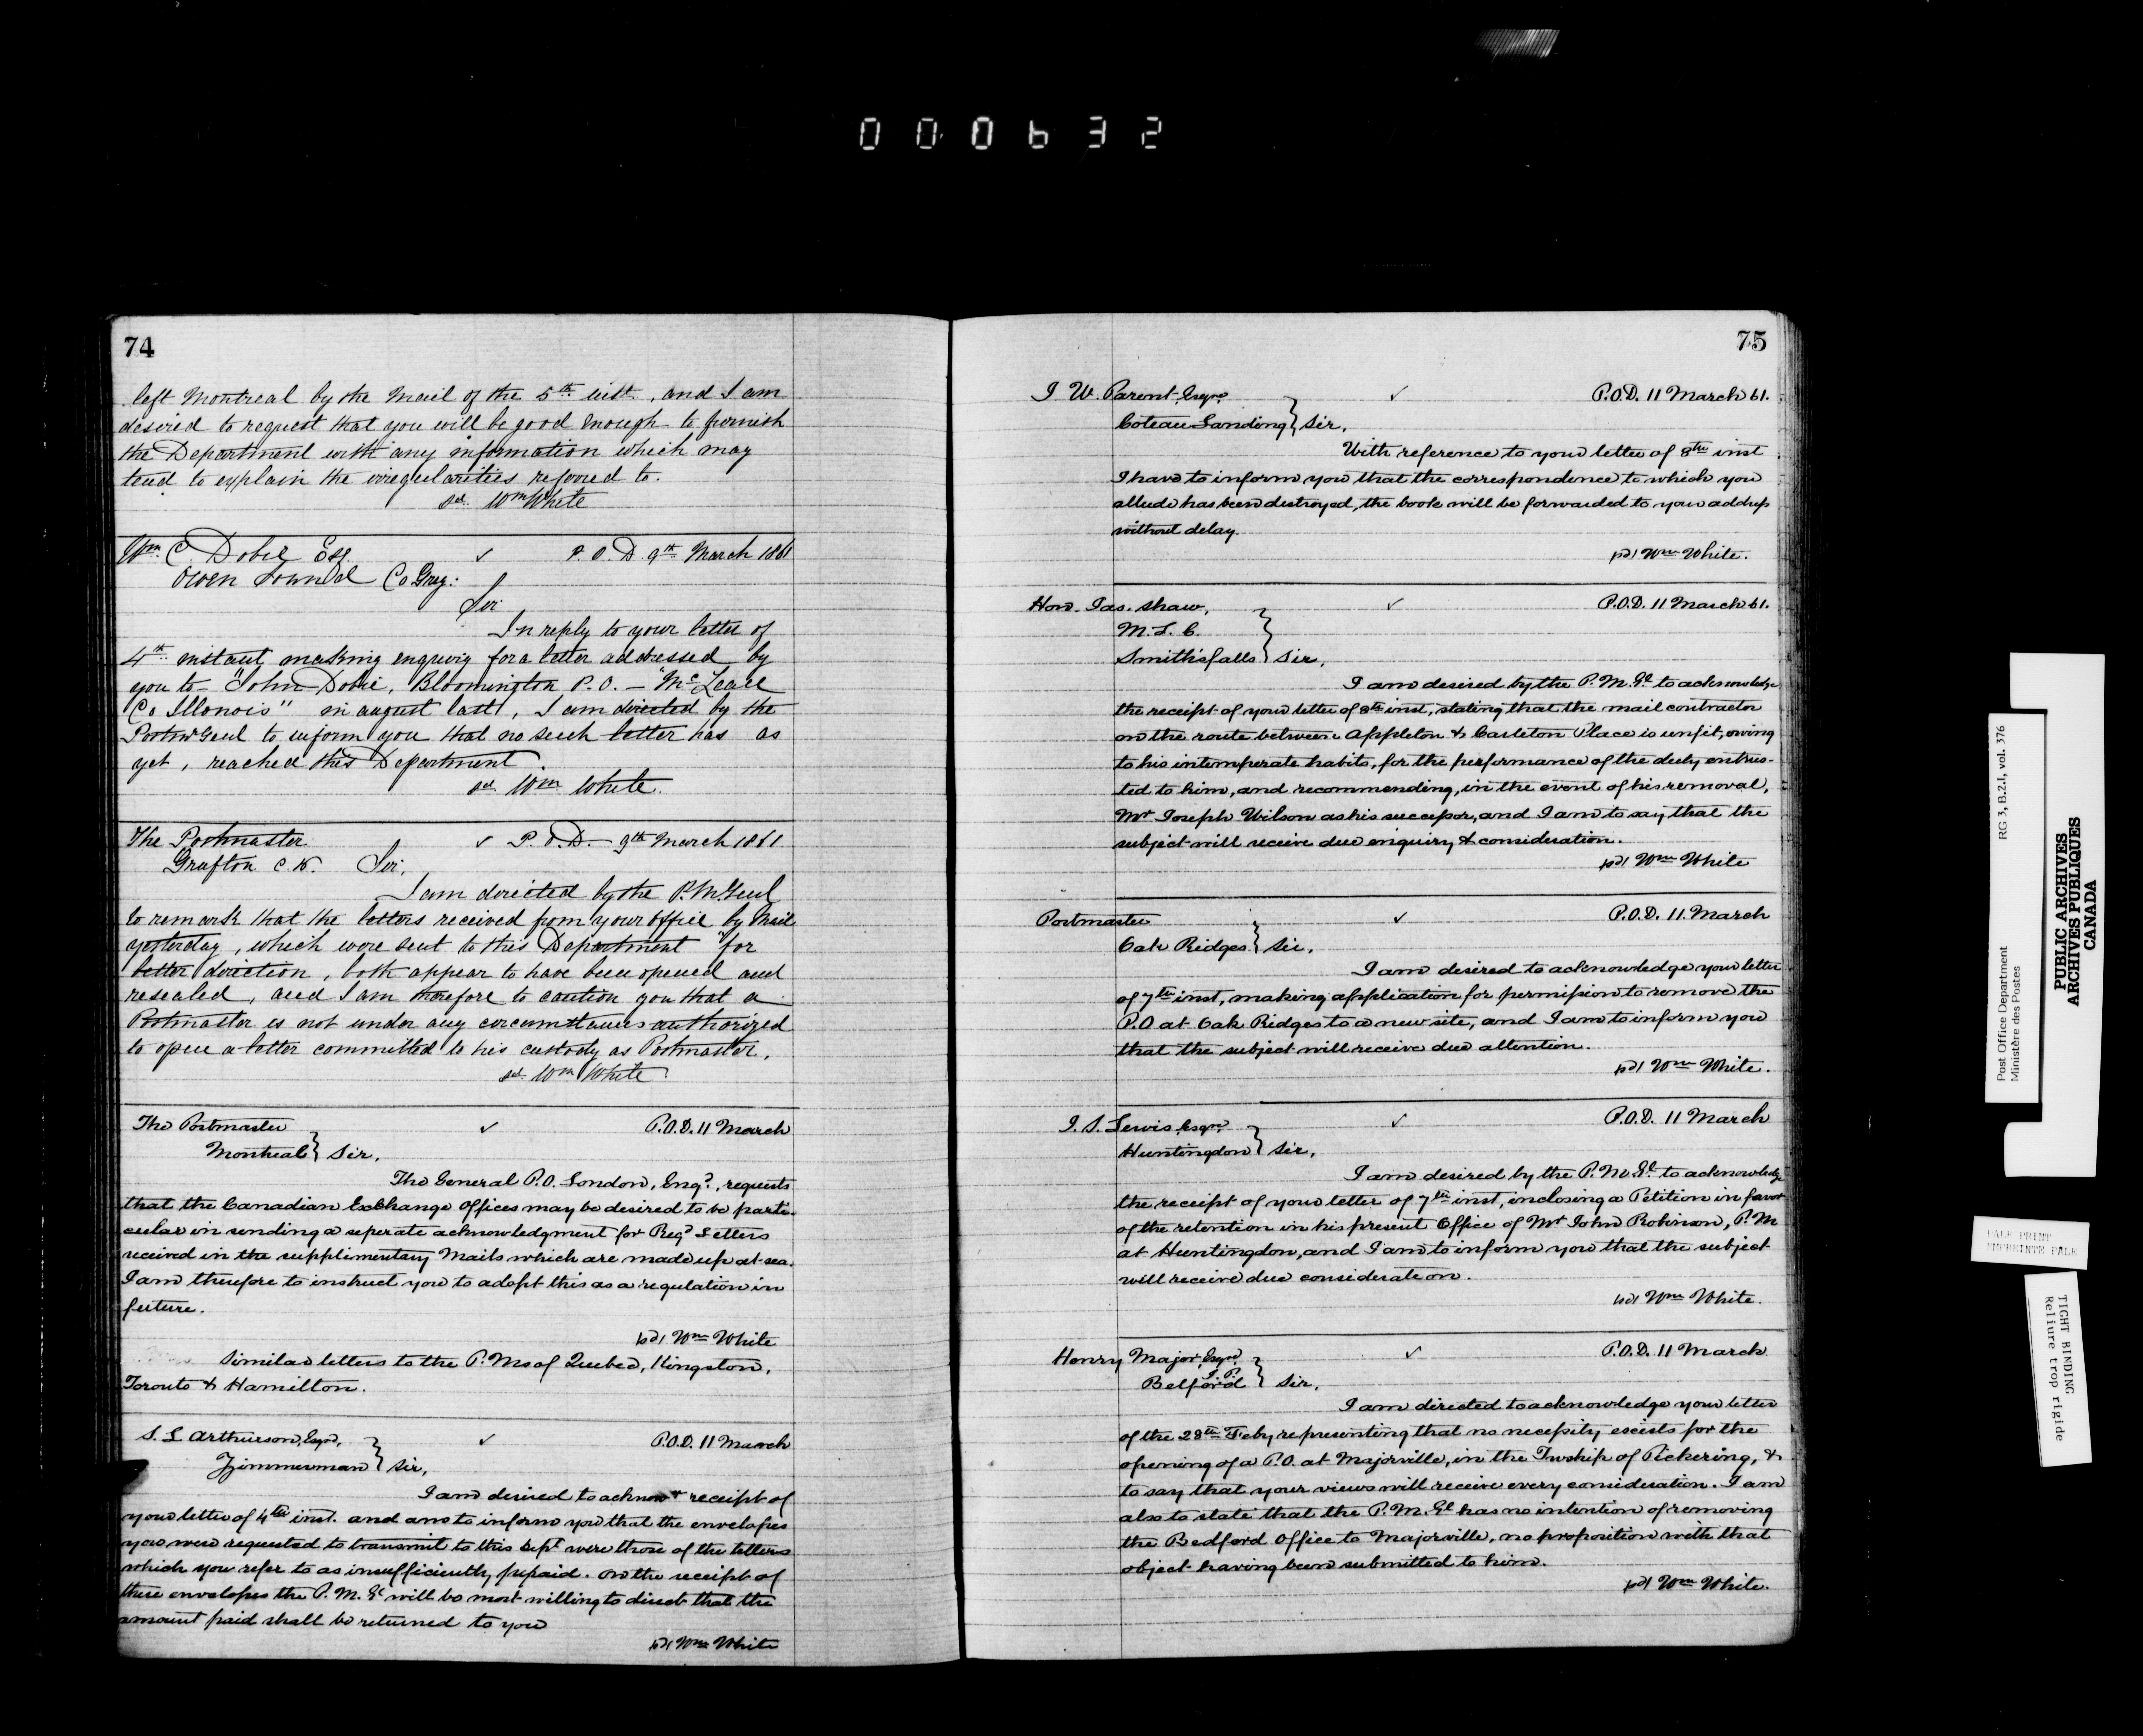 000632
74
left Montreal by the Mail of the 5th inst., and I am
desired to request that you will be good enough to furnish
the Department with any information which may
tend to explain the irregularities refered to.
sd. Wm White
Wm C Dobie Esq ✓ P.O.D. 9th March 1861
Owen Sound Co Grey:
Sir
In reply to your letter of
4th instant, making enquiry for a letter addressed by
you to "John Dobie, Bloomington P.O. — "McLeall
Co Illonois" in august last, I am directed by the
Postmr Genl to inform you that no such letter has as
yet, reached this Department.
sd. Wm White.
The Postmaster ✓ P.O.D. 9th March 1861
Grafton C.W. Sir,
I am directed by the P.M. Genl
to remark that the letters received from your office by Mail
yesterday, which were sent to this Department "for
better direction, both appear to have been opened and
resealed, and I am therefore to caution you that a
Postmaster is not under any circumstances authorized
to open a letter committed to his custody as Postmaster.
sd. Wm White
The Postmaster ✓ P.O.D. 11 March
Montreal } Sir,
The General P.O. London, Engd, requests
that the Canadian Exchange Offices may be desired to be parti-
cular in sending a seperate acknowledgment for Regd Letters
received in the supplimentary Mails which are made up at sea.
I am therefore to instruct you to adopt this as a regulation in
future.
sd/ Wm White
Similar letters to the P.Ms of Quebec, Kingston,
Toronto & Hamilton.
S. L Arthurson, Esqre, ✓ P.O.D. 11 March
Zimmerman } Sir,
I am desired to acknow receipt of
your letter of 4th inst. and am to inform you that the envelopes
you were requested to transmit to this Dept were those of the letters
which you refer to as insufficiently prepaid. On the receipt of
these envelopes the P.M. Gl will be most willing to direct that the
amount paid shall be returned to you
sd/ Wm White
75
J W. Parent, Esqre, ✓ P.O.D. 11 March 61.
Coteau Landing } Sir,
With reference to your letter of 8th inst
I have to inform you that the correspondence to which you
allude has been destroyed, the book will be forwarded to your address
without delay.
sd/ Wm White.
Hon. Jas. Shaw, ✓ P.O.D. 11 March 61.
M.L.C.
Smith's falls } Sir,
I am desired by the P.M. Gl to acknowledge
the receipt of your letter of 8th inst, stating that the mail contractor
on the route between Appleton & Carleton Place is unfit, owing
to his intemperate habits, for the performance of the duty entrus-
ted to him, and recommending, in the event of his removal,
Mr Joseph Wilson as his successor, and I am to say that the
subject will receive due enquiry & consideration.
sd/ Wm White
Postmaster ✓ P.O.D. 11. March
Oak Ridges } Sir,
I am desired to acknowledge your letter
of 7th inst, making application for permission to remove the
P.O at Oak Ridges to a new site, and I am to inform you
that the subject will receive due attention.
sd/ Wm White.
J. S. Lewis Esqre, ✓ P.O.D. 11 March
Huntingdon } Sir,
I am desired by the P.M. Gl to acknowledge
the receipt of your letter of 7th inst, inclosing a Petition in favor
of the retention in his present Office of Mr John Robinson, P.M
at Huntingdon, and I am to inform you that the subject
will receive due consideration.
sd/ Wm White.
Henry Major, Esqre, ✓ P.O.D. 11 March
J.P.
Belford } Sir,
I am directed to acknowledge your letter
of the 28th Feby representing that no necessity exists for the
opening of a P.O. at Majorville, in the Twship of Pickering, &
to say that your views will receive every consideration. I am
also to state that the P.M. Gl has no intention of removing
the Bedford Office to Majorville, no proposition with that
object having been submitted to him.
sd/ Wm White.
Post Office Department RG 3, B.2.1, vol. 376
Ministère des Postes
PUBLIC ARCHIVES
ARCHIVES PUBLIQUES
CANADA
PALE PRINT
EMPREINTE PALE
TIGHT BINDING
Reliure trop rigide